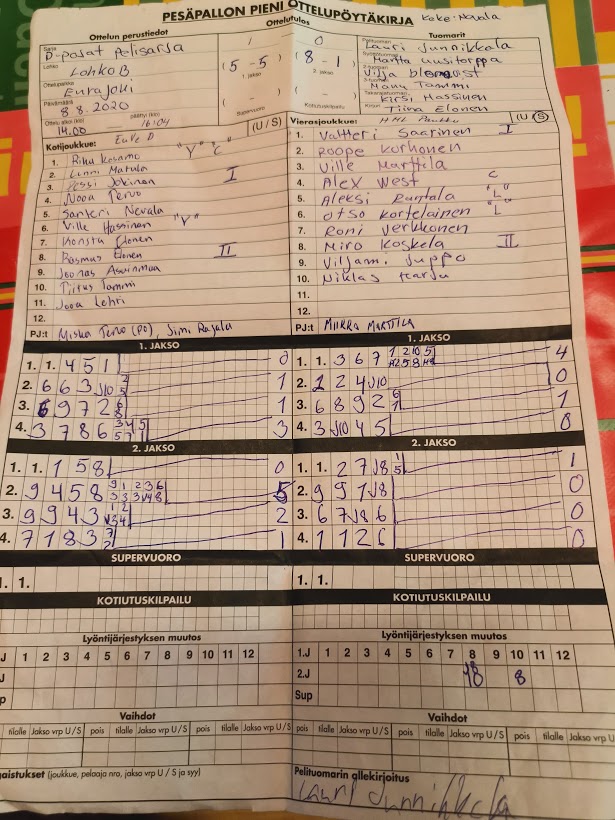 PESÄPALLON PIENI OTTELUPÖYTÄKIRJA
Ottelun perustiedot
Ottelutulos
Tuomarit
Sarja
D-pojat Pelisarja
Lohko
Lohko B
Ottelupaikka
Eurajoki
Päivämäärä
8.8.2020
Ottelu alkoi (klo)
päättyi (klo)
14.00
16:04
1 0
(5 - 5) (8 - 1)
1. jakso 2. jakso
( - ) ( - )
Supervuoro Kotiutuskilpailu
Pelituomari
Lauri Junnikkala
Martta Uusitorppa
Vilja Blomqvist
Manu Tammi
Kirsi Hassinen
Tiina Elonen
Kotijoukkue:
(U / S)
1. Riku Kosamo "V" C
2. Linni Matula
3. Jokinen I
4. Nooa Tervo
5. Santeri Nevala
6. Ville Hassinen "V"
7. Konsta Elonen
8. Rasmus Elonen II
9. Joonas
10. Tiitus Tammi
11. Jooa Lehti
12.
PJ:t Miska Tervo (PJ), Simi Rajala
Vierasjoukkue:
(U / S)
1. Valtteri Saarinen I
2. Roope Korhonen
3. Ville Marttila
4. Alex West C
5. Aleksi Rantala "L"
6. Otso Kortelainen "L"
7. Roni Verkkonen
8. Miro Koskela II
9. Viljami Juppo
10. Niklas Harju
11.
12.
PJ:t MIIKKA MARTTILA
1. JAKSO
1. 1. 4 5 1 0
2. 6 6 3 J10 1
3. 6 9 7 2 1
4. 3 7 8 6 3
1. 1. 3 6 7 4
2. 1 2 4 J10 0
3. 6 8 9 2 1
4. 3 J10 4 5 0
2. JAKSO
1. 1. 1 5 8 0
2. 9 4 5 8 5
3. 9 9 4 3 2
4. 7 1 8 3 1
1. 1. 2 7 J8 1
2. 9 9 1 J8 0
3. 6 7 J8 6 0
4. 1 1 2 6 0
SUPERVUORO
1. 1.
1. 1.
KOTIUTUSKILPAILU
Lyöntijärjestyksen muutos
J 1 2 3 4 5 6 7 8 9 10 11 12
J
p
1.J 1 2 3 4 5 6 7 8 9 10 11 12
2.J 8
Sup
Vaihdot
tilalle Jakso vrp U / S pois tilalle Jakso vrp U / S pois tilalle Jakso vrp U / S
pois tilalle Jakso vrp U / S pois tilalle Jakso vrp U / S
gaistukset (joukkue, pelaaja nro, jakso vrp U / S ja syy)
Pelituomarin allekirjoitus
Lauri Junnikkala